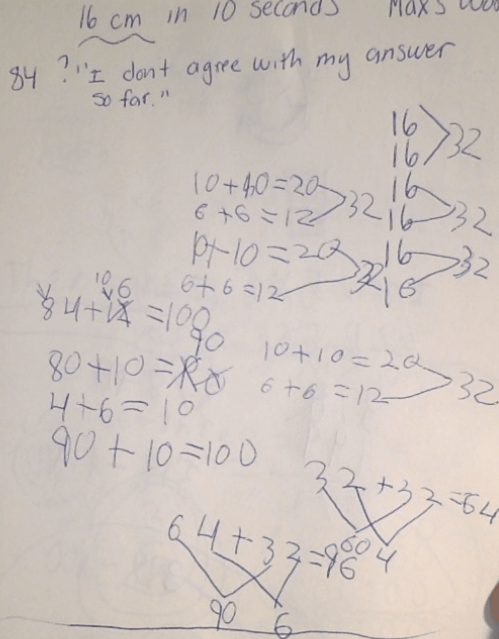 16 cm in 10 seconds Max's
84 ? "I dont agree with my answer
so far."
16
16 32
10+10=20 16
6+6=12 32 16 32
10+10=20 16
6+6=12 32 16 32
10 6
84+ =100
90
80+10=
10+10=20
6+6=12 32
4+6=10
90+10=100
32+32=64
60 4
64+32=96
90 6